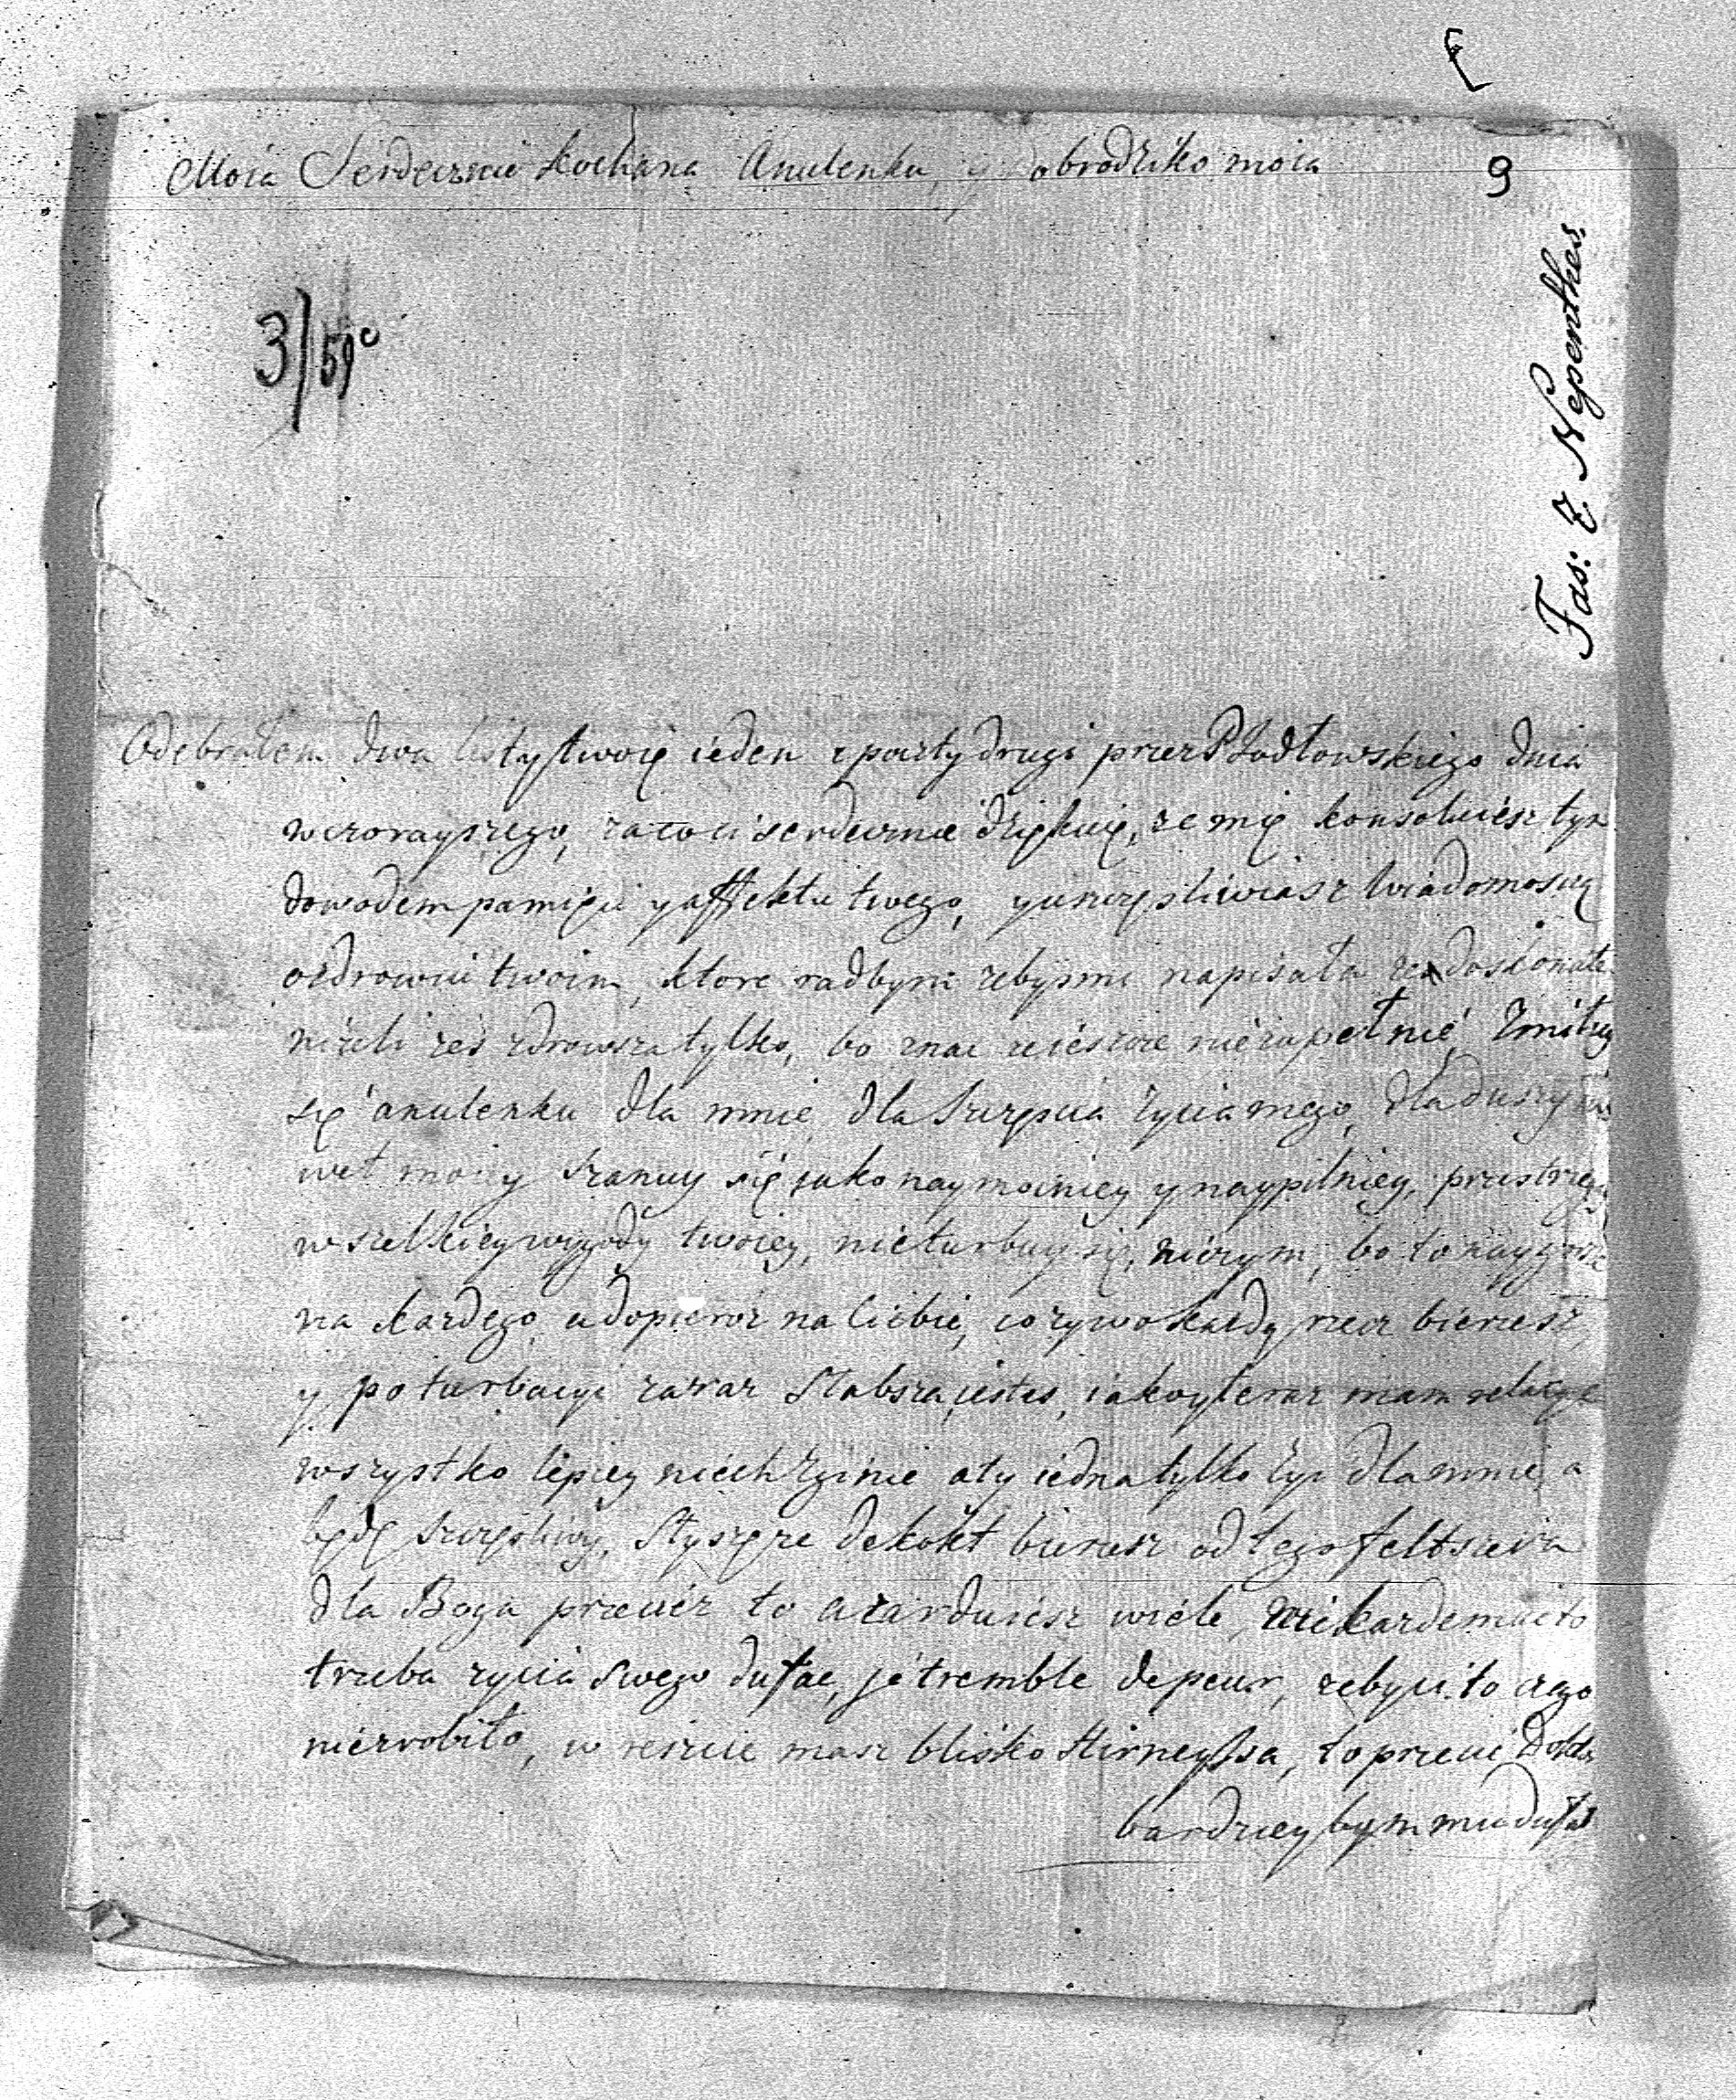 9
Moia Serdecznie kochana Anulenku, y dobrodziko moia
3/59
Fas: Z. Nepenthes.
Odebrałem dwa listy twoie ieden z poczty drugi przez P Zodłowskiego dnia
wczorayszego, za co ci serdecznie dziękuię, ze mię konsoluiesz tym
dowodem pamięci y affektu twego, y uszczęsliwiasz wiadomoscią
o zdrowiu twoim, ktore radbym zebysmi napisała ze doskonałe
nizeli zes zdrowsza tylko, bo znac ze ieszcze nie zupełnie, Zmiłuy
się anulenku dla mnie, dla Szczęscia zycia mego, dla duszy
moiey szanuy się iako naymocniey y naypilniey, przestrzegay
wszelkiey wygody twoiey, nieturbuy się, niczym, bo to naygorsza
na kazdego, a dopieroz na Ciebie, co zywo kazdą rzecz bierzesz,
y po turbacyi zaraz Słabsza iestes, iako y teraz mam relacyę
wszystko lepiey niech zginie a ty iedna tylko zyi dla mnie, a
będę szczęsliwy, Słyszę ze dekokt bierzesz od tego feltszera
dla Boga przeciez to azarduiesz wiele, nie kazdemu to
trzeba zycia swego dufac, je tremble de peur, zebyci to czego
niezrobiło, w reszcie masz blisko Hirneyssa, to przecie Doktor
bardziey bym mu dufał